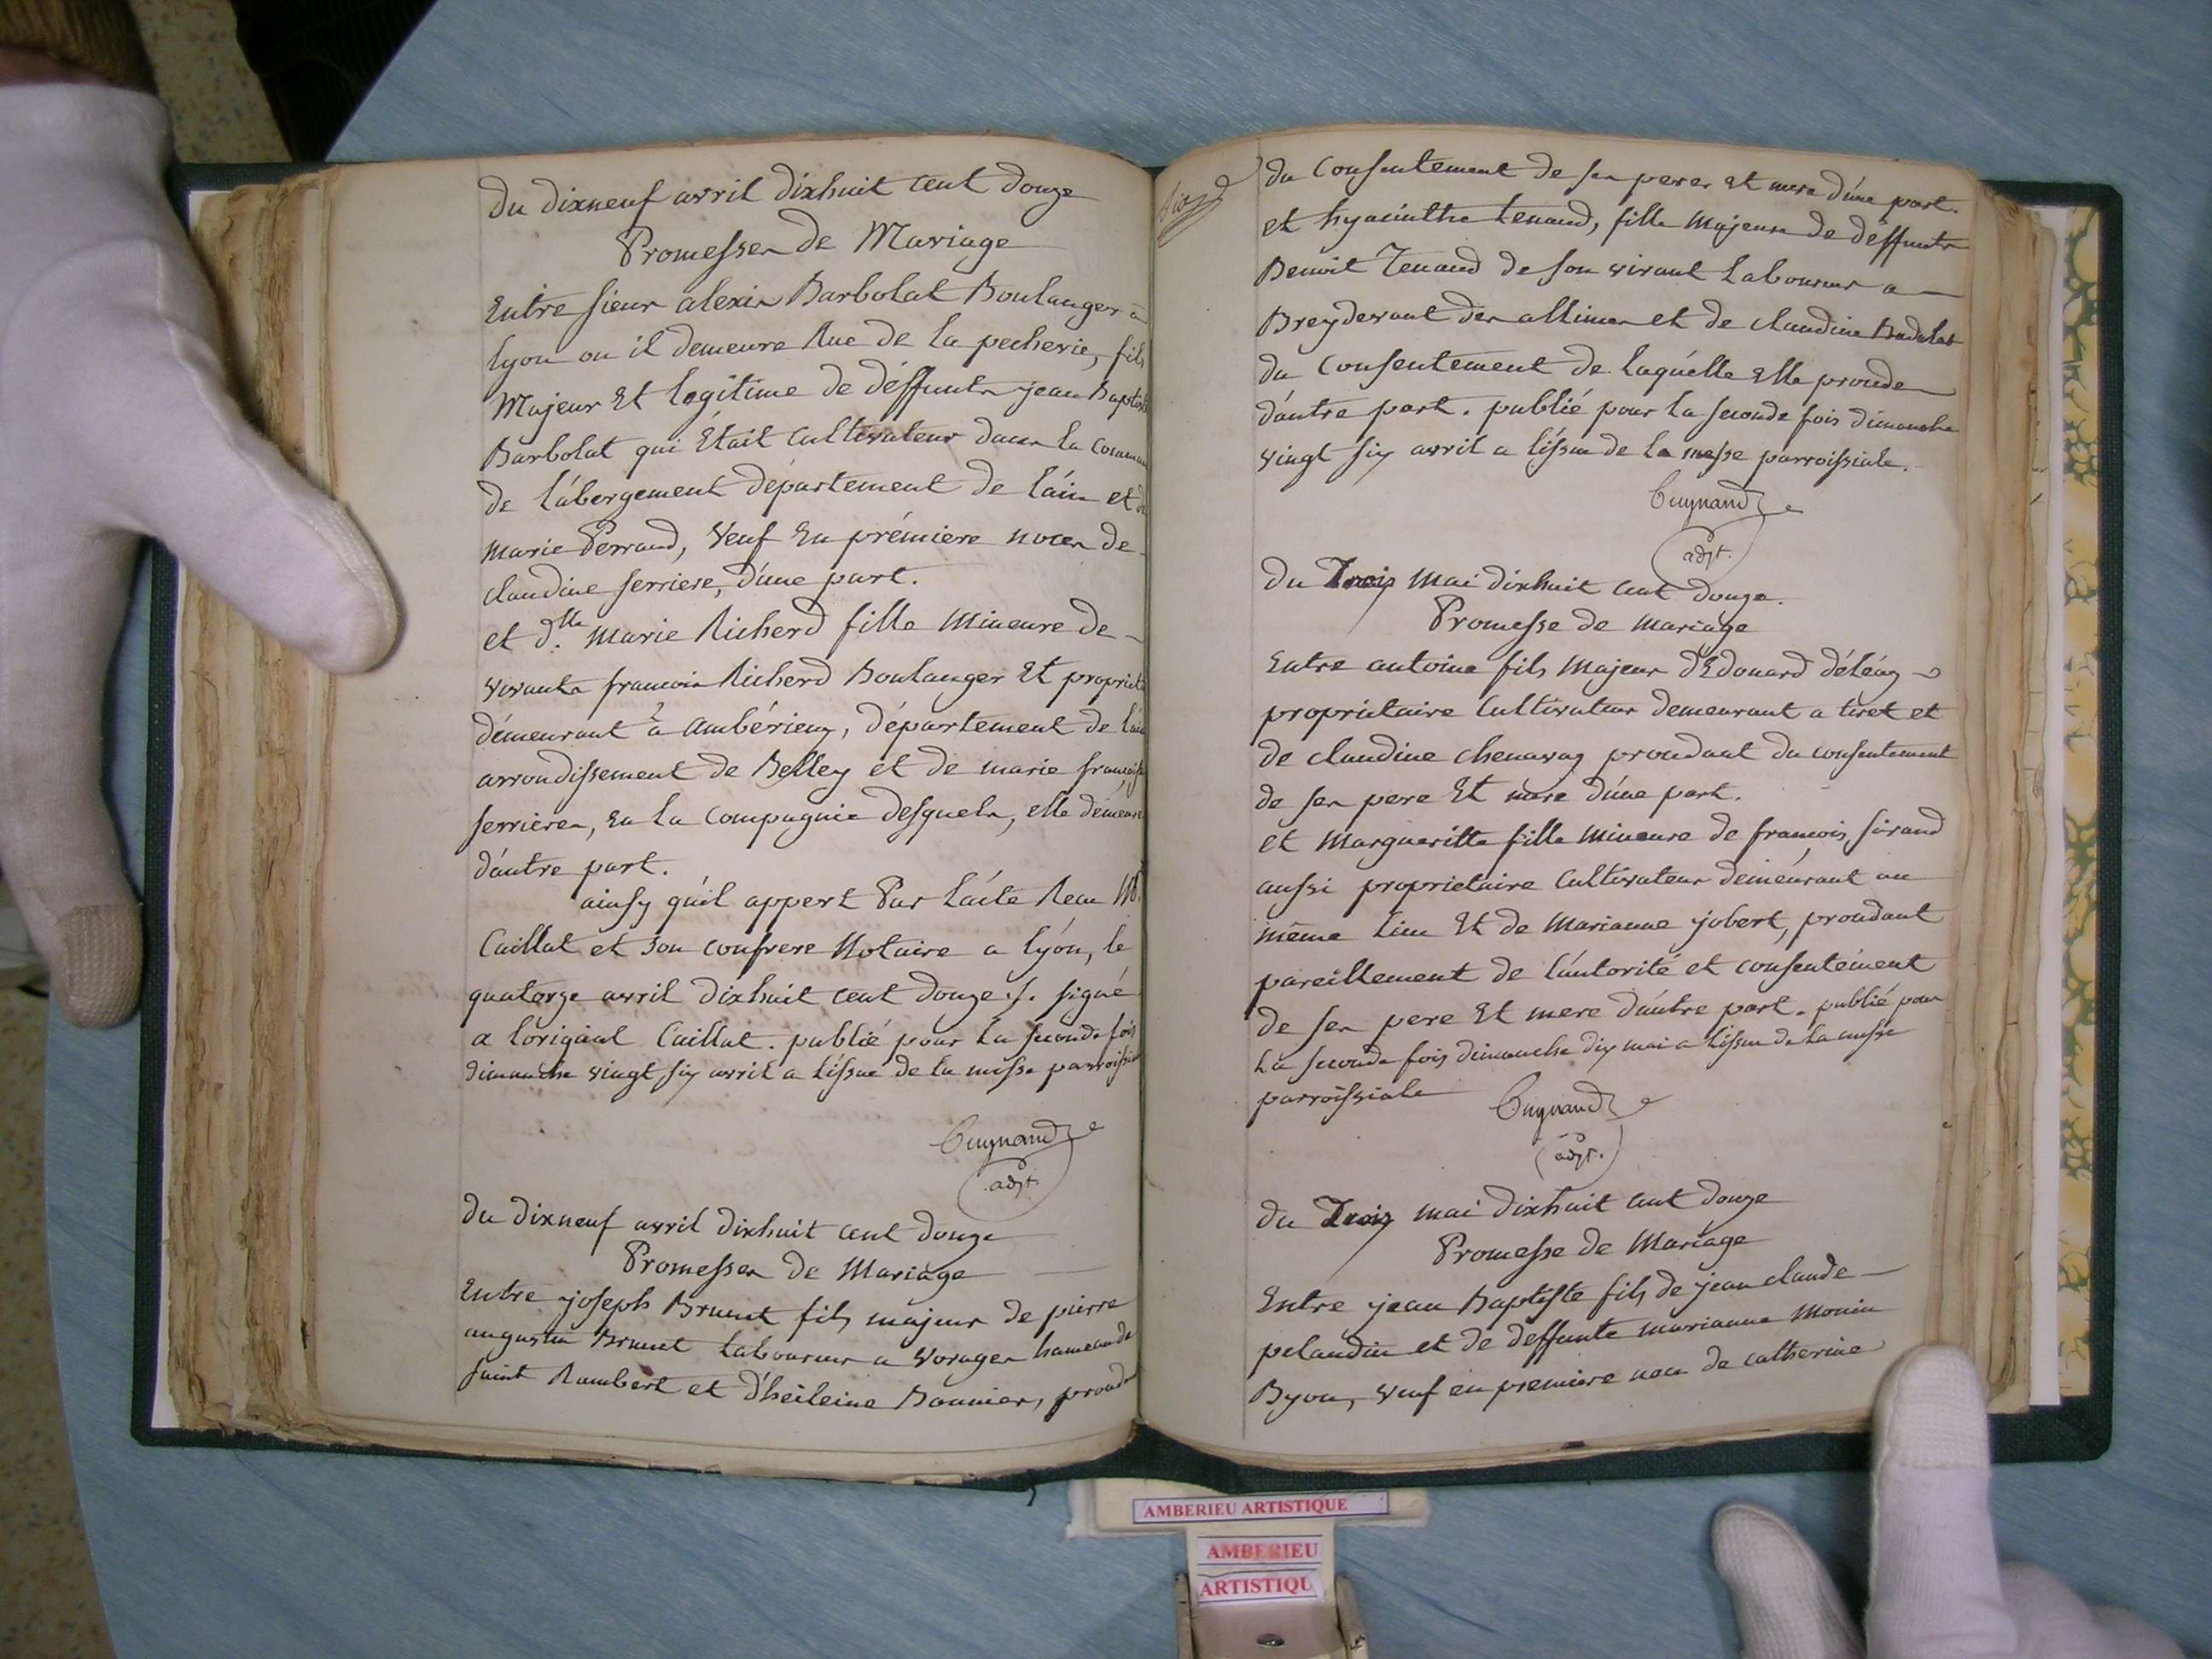 Du dixneuf avril dixhuit cent douze
Promesses de Mariage
Entre sieur alexis Barbolat Boulanger a
lyon ou il demeure Rue de la pecherie, fils
Majeur Et legitime de déffunts jean Baptiste
Barbolat qui Etait Cultivateur dans la Commun
de l'abergement département de l'ain et de
marie Perraud, Veuf En prémiere noces de
claudine serriere, d'une part.
et dlle Marie Richerd fille Mineure de
vivants francois Richerd Boulanger Et proprieté
démeurant a Ambérieux, département de l'ain
arrondissement de Belley et de marie françoise
serrieres, En la Compagnie desquels, elle demeure
d'autre part.
ainsy qu'il appert Par l'acte Recu Me
Caillat et son confrere Notaire a lyon, le
quatorze avril dixhuit cent douze ./. signé
a l'original Caillat. publié pour la seconde fois
dimanche vingt six avril a l'issue de la messe parroissiale
Cuynand
adjt.
Du dixneuf avril dixhuit cent douze
Promesses de Mariage
Entre joseph Brunet fils majeur de pierre
augustin Brunet laboureur a Vorages hameau de
saint Rambert et d'heileine Bonnier, procédant
du Consentement de ses peres et mere d'une part.
et hyacinthe tenand, fille Majeure de déffunts
Benoit Tenand de son vivant Laboureur a
Breydevant des allimes et de claudine
du Consentement de laquelle Elle procede
d'autre part. publié pour la seconde fois dimanche
vingt six avril a l'issue de la messe parroissiale.
Cuynand
adjt.
Du Trois Mai dixhuit cent douze.
Promesse de mariage
Entre antoine fils Majeur d'Edouard déléaz
propriétaire Cultivateur demeurant a tiret et
de claudine chenavaz procedant du consentement
de ses pere Et mere d'une part.
et Margueritte fille Mineure de francois, sirand
aussi proprietaire Cultivateur demeurant au
même lieu Et de Marianne jobert, procedant
pareillement de l'autorité et consentement
de ses pere Et mere d'autre part. publié pour
la seconde fois dimanche dix mai a l'issue de la messe
parroissiale
Cuynand
adjt.
Du Trois mai dixhuit cent douze
Promesse de Mariage
Entre jean Baptiste fils de jean claude
pelandin et de deffunte marianne Monin
Byon, Veuf en premiere noce de catherine
AMBERIEU ARTISTIQUE
AMBERIEU
ARTISTIQU